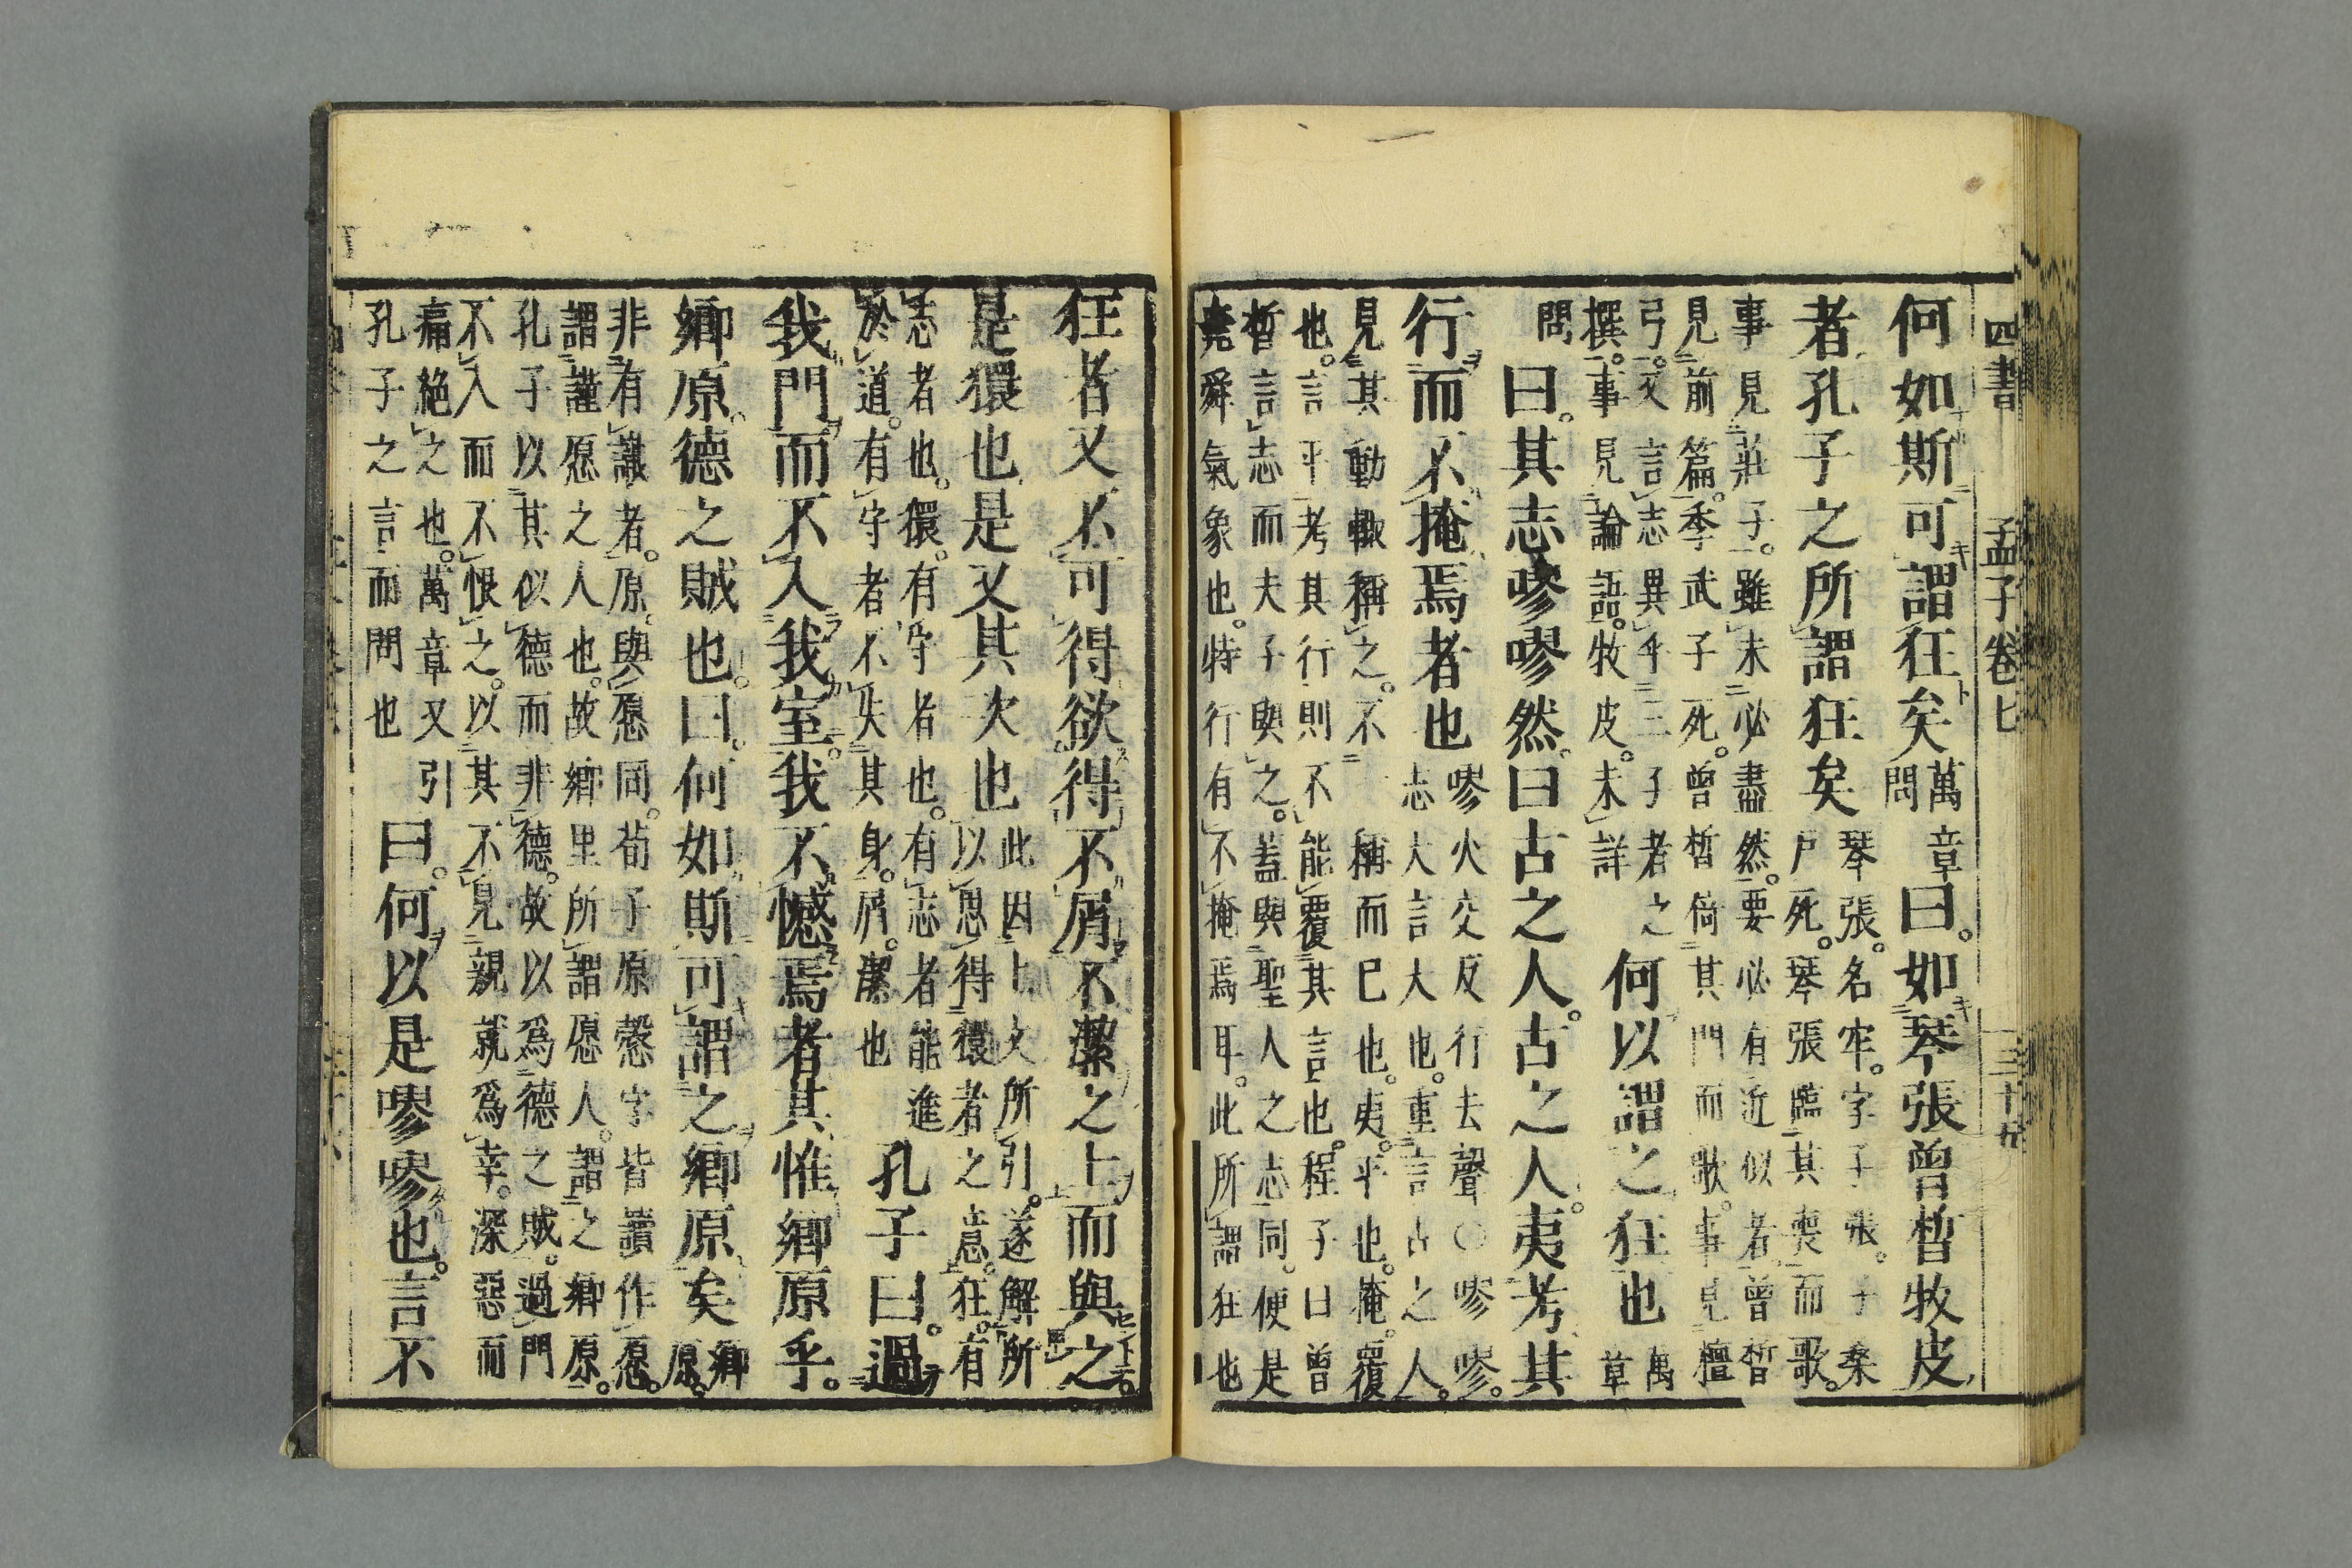 四書 孟子卷七 三十五
何如斯可謂狂矣萬章
問
曰。如琴張曾皙牧皮
者孔子之所謂狂矣
琴張。名牢。字子張。子桑
戶死。琴張臨其喪而歌。
事見莊子。雖未必盡然。要必有近似者。曾皙
見前篇。季武子死。曾皙倚其門而歌。事見檀
弓。又言志異乎三子者之
撰。事見論語。牧皮。未詳
何以謂之狂也
萬
章
問
曰。其志嘐嘐然。曰古之人。古之人。夷考其
行而不掩焉者也
嘐火交反行去聲○嘐嘐。
志大言大也。重言古之人。
見其動輒稱之。不一稱而已也。夷。平也。掩。覆
也。言平考其行則不能覆其言也。程子曰曾
皙言志而夫子與之。蓋與聖人之志同。便是
堯舜氣象也。特行有不掩焉耳。此所謂狂也
狂者又不可得欲得不屑不潔之士而與之。
是獧也是又其次也
此因上文所引。遂解所
以思得獧者之意。狂。有
志者也。獧。有守者也。有志者能進
於道。有守者不失其身。屑。潔也
孔子曰。過
我門而不入我室。我不憾焉者其惟鄉原乎。
鄉原。德之賊也。曰。何如斯可謂之鄉原矣
鄉
原。
非有識者。原。與愿同。荀子原慤字皆讀作愿。
謂謹愿之人也。故鄉里所謂愿人。謂之鄉原。
孔子以其似德而非德。故以爲德之賊。過門
不入而不恨之。以其不見親就爲幸。深惡而
痛絕之也。萬章又引
孔子之言而問也
曰。何以是嘐嘐也。言不